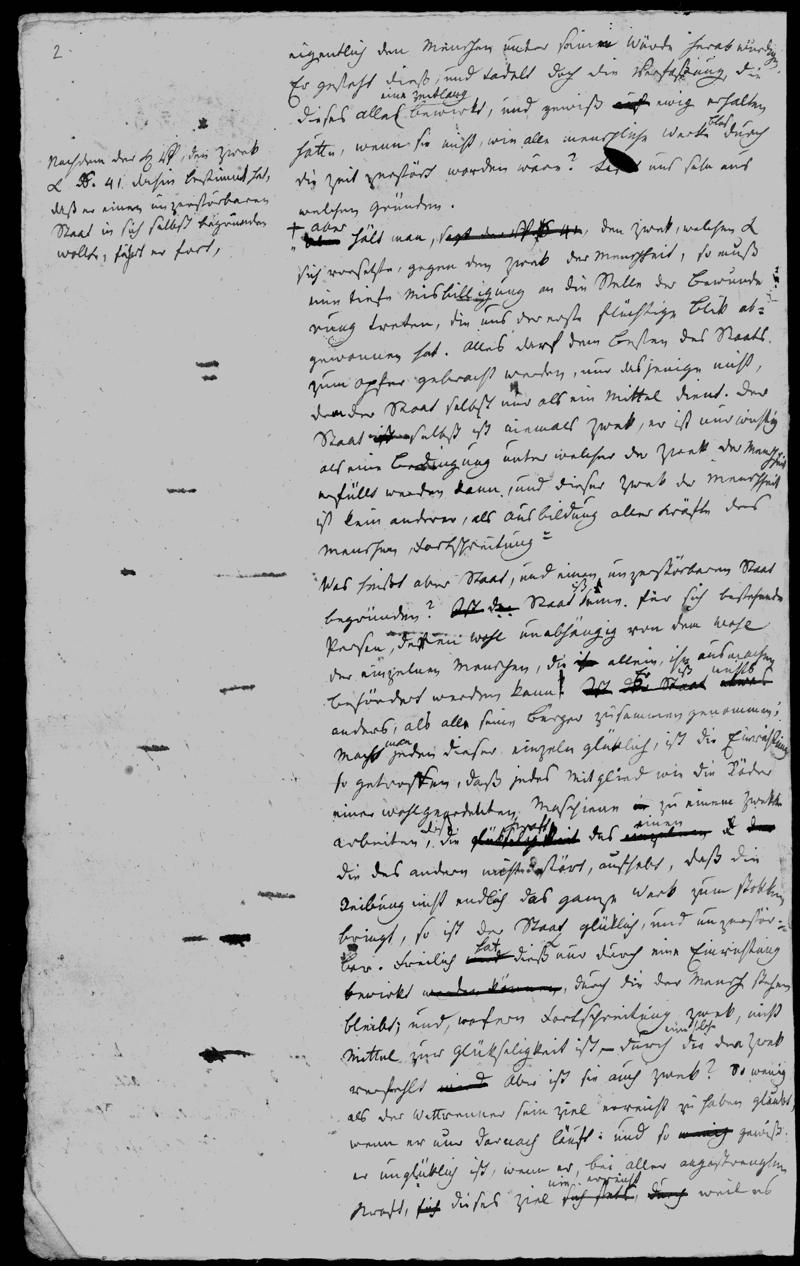 2.
eigentlich den Menschen unter seine Würde herabwürdige.
Er gesteht dieß, und tadelt doch die Verfaßung, die
eine Zeitlang
dieses alles bewirkt, und gewiß auf ewig erhalten
hätte, wenn sie nicht, wie alle menschliche Werke blos durch
die Zeit zerstört worden wäre? uns sehn aus
welchen Gründen.
Nachdem der H Vf, den Zwek
L S. 41. dahin bestimmt hat,
daß er einen unzerstörbaren
Staat in sich selbst begründen
wollte, fährt er fort,
aber
hält man, sagt der Vf S 41, den Zwek, welchen L
sich vorsetzte, gegen den Zwek der Menschheit, so muß
eine tiefe Misbilligung an die Stelle der Bewunde-
rung treten, die uns der erste flüchtige Blik ab-
gewonnen hat. Alles darf dem Besten des Staats
zum Opfer gebracht werden, nur dasjenige nicht,
dem der Staat selbst nur als ein Mittel dient. Der
Staat ist selbst ist niemals Zwek, er ist nur wichtig
als eine Bedingung unter welcher der Zwek der Menschheit
erfüllt werden kann, und dieser Zwek der Menschheit
ist kein anderer, als Ausbildung aller Kräfte des
Menschen, Fortschreitung"
Was heißt aber Staat, und einen unzerstörbaren Staat
begründen? Ist der Staat eine für sich bestehende
Person, deßen Wohl unabhängig von dem Wohl
der einzelnen Menschen, die ist allein, ihn ausmachen
befördert werden kann? Ist der Staat etwas
er ist nichts
anders, als alle seine Bürger zusammen genommen;
macht man jeden dieser einzeln glüklich, ist die Einrichtung
so getroffen, daß jedes Mitglied wie die Räder
einer wohlgeordneten Maschiene in zu einem Zwekke
arbeiten, daß die Kraft Glükseligkeit des einen
die des andern nicht stört, aufhebt, daß die
Reibung nicht endlich das ganze Werk zum stokken
bringt, so ist der Staat glüklich, und unzerstör-
bar. Freilich hat dieß nur durch eine Einrichtung
bewirkt werden können, durch die der Mensch stehen
bleibt; und, wofern Fortschreitung Zwek, nicht
Mittel zur Glükseligkeit ist, durch die der Zwek
verfehlt wird. Aber ist sie auch Zwek? So wenig
als der Wettrenner sein Ziel erreicht zu haben glaubt,
wenn er nur darnach läuft: und so wenig gewiß
er unglüklich ist, wenn er, bei aller angestrengten
nie erreicht
Kraft, sich dieses Ziel sich stets, durch weil es